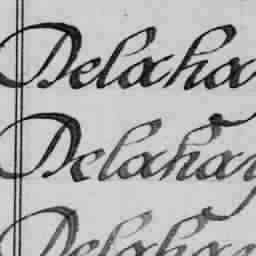 Delaha
Delahay
Delahay